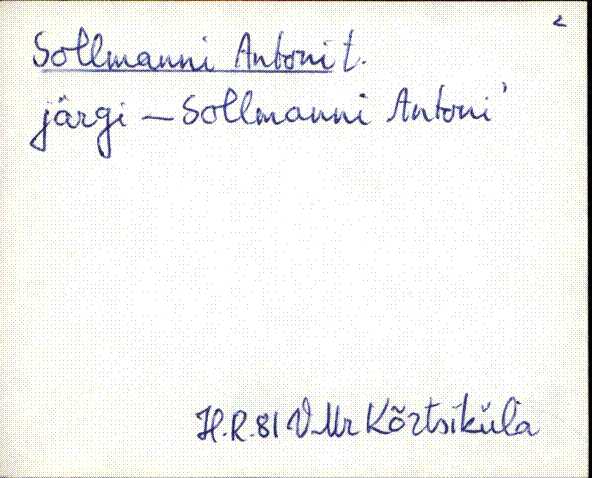 Sollmanni Antoni t.
järgi – Sollmanni Antoni'
H.R. 81 VMr Kõrtsiküla